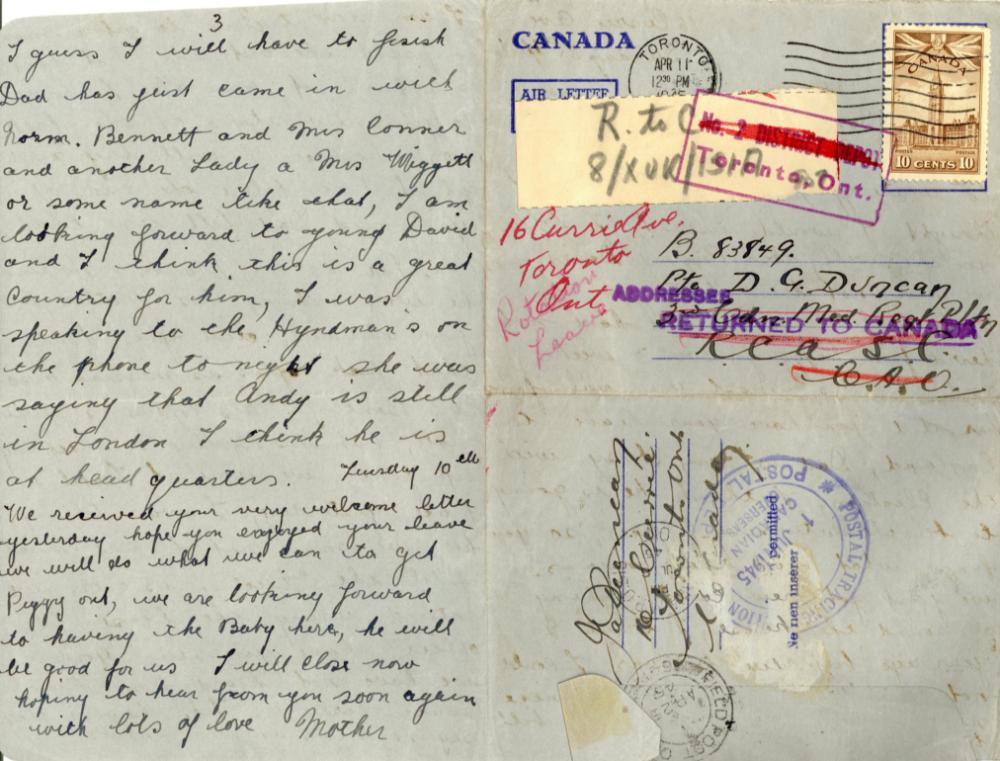 3
I guess I will have to finish
Dad has just came in with
Norm. Bennett and Mrs Conner
and another Lady a Mrs Wiggett
or some name like that, I am
looking forward to young David
and I think this is a great
Country for him, I was
speaking to the Hyndmans on
the phone to night she was
saying that Andy is still
in London I think he is
at head quarters. Tuesday 10th
We received your very welcome letter
yesterday hope you enjoyed your leave
we will do what we can to get
Peggy out, we are looking forward
to having the Baby here, he will
be good for us I will close now
hoping to hear from you soon again
with lots of love Mother
CANADA
AIR LETTER
TORONTO
APR 11
12 30 PM
CANADA
10 CENTS 10
R. to C
8/XUK/
No. 2 DISTRICT DEPOT
Toronto, Ont.
16 Currie Ave.
Toronto
Ont
B. 83849.
Pte D. G. Duncan
ADDRESSEE
Cdn Med Regt Pltn
RETURNED TO CANADA
R.C.A.S.C.
C.A.O.
Duncan
16 Currie
Toronto Ont
Canada
POSTAL TRACING
POSTAL
1945
permitted
Ne rien insérer
FIELD POST